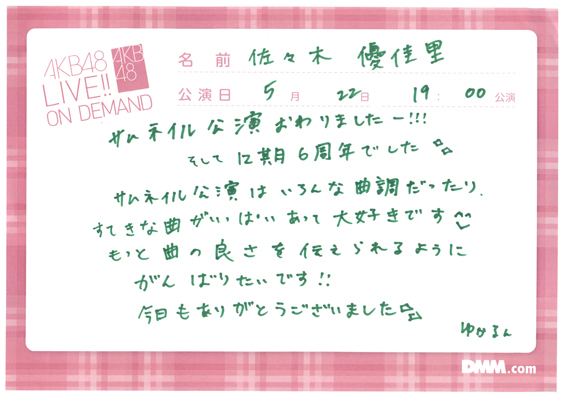 AKB48
LIVE!!
ON DEMAND
AKB
48
名前 佐々木 優佳里
公演日 5月 22日 19:00公演
サムネイル公演おわりましたー!!!
そして12期6周年でした
サムネイル公演はいろんな曲調だったり、
すてきな曲がいっぱいあって大好きです^^
もっと曲の良さを伝えられるように
がんばりたいです!!
今日もありがとうございました
ゆかるん
DMM.com